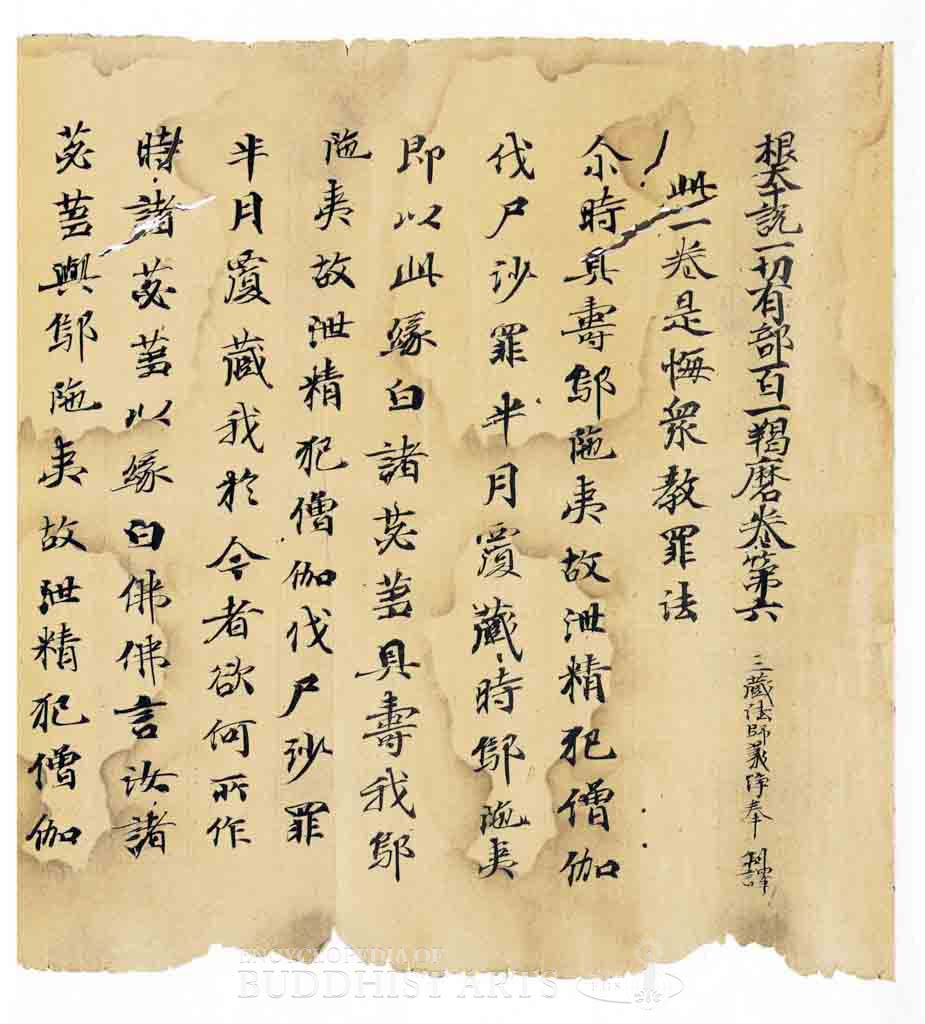 根本說一切有部百一羯磨卷第六 三藏法師義淨奉 制譯
此一卷是悔衆教罪法
尒時具壽鄔陁夷故泄精犯僧伽
伐尸沙罪半月覆藏時鄔陁夷
即以此緣白諸苾蒭具壽我鄔
陁夷故泄精犯僧伽伐尸沙罪
半月覆藏我於今者欲何所作
時諸苾蒭以緣白佛佛言汝諸
苾蒭與鄔陁夷故泄精犯僧伽
ENCYCLOPEDIA OF
BUDDHIST ARTS
FGS